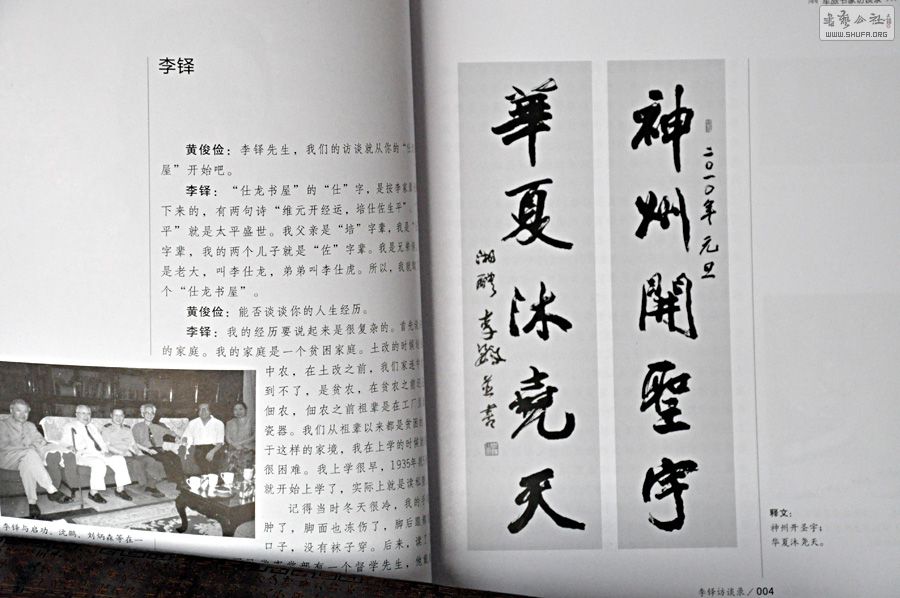 李铎
黄俊俭：李铎先生，我们的访谈就从你的“仕
屋”开始吧。
李铎：“仕龙书屋”的“仕”字，是按李家
下来的，有两句诗“维元开经运，培仕佐生平”。
平”就是太平盛世。我父亲是“培”字辈，我是“
字辈，我的两个儿子就是“佐”字辈。我是兄弟
是老大，叫李仕龙，弟弟叫李仕虎。所以，我就
个“仕龙书屋”。
黄俊俭：能否谈谈你的人生经历。
李铎：我的经历要说起来是很复杂的。首先
的家庭。我的家庭是一个贫困家庭。土改的时候
中农，在土改之前，我们家连中
到不了，是贫农，在贫农之前
佃农，佃农之前祖辈是在工厂
瓷器。我们从祖辈以来都是贫困
于这样的家境，我在上学的时候
很困难。我上学很早，1935年
就开始上学了，实际上就是读私
记得当时冬天很冷，我的手
肿了，脚面也冻伤了，脚后跟
口子，没有袜子穿。后来，读了
部有一个督学先生，他
李铎与启功、沈鹏、刘炳森等在一
神州開聖宇
二〇一〇年元旦
華夏沐堯天
湘醴李鐸並書
释文：
神州开圣宇；
华夏沐尧天。
李铎访谈录／004
书艺公社
WWW.SHUFA.ORG